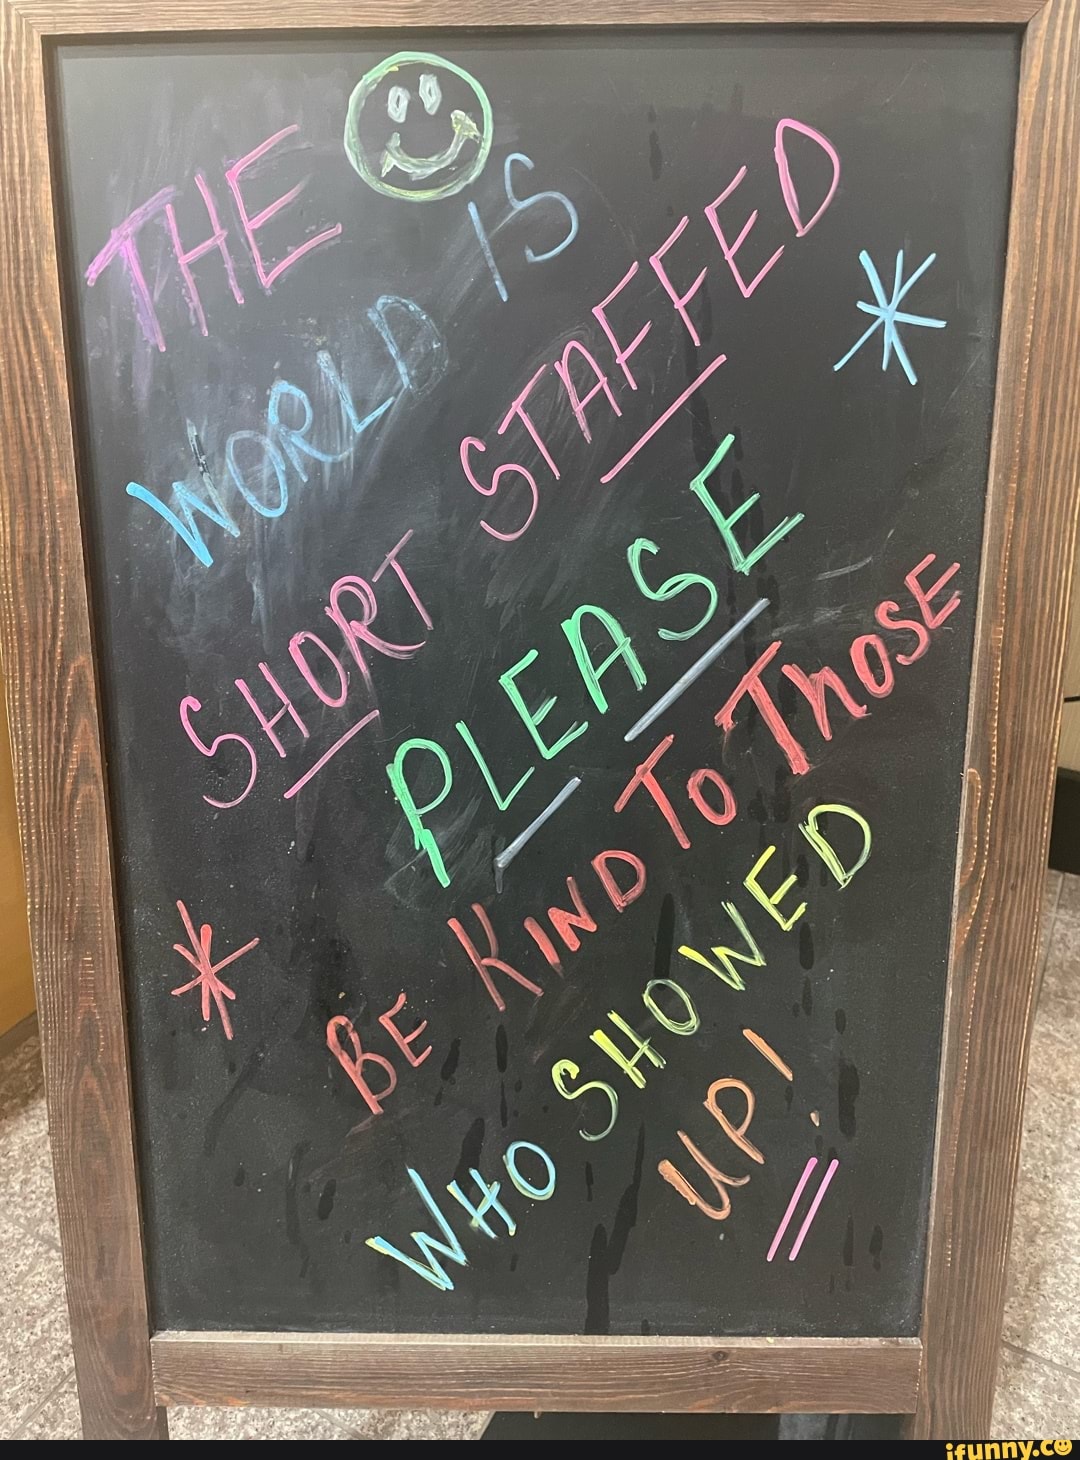 THE
WORLD IS
SHORT STAFFED
PLEASE
BE KIND TO THOSE
WHO SHOWED
UP!
ifunny.co